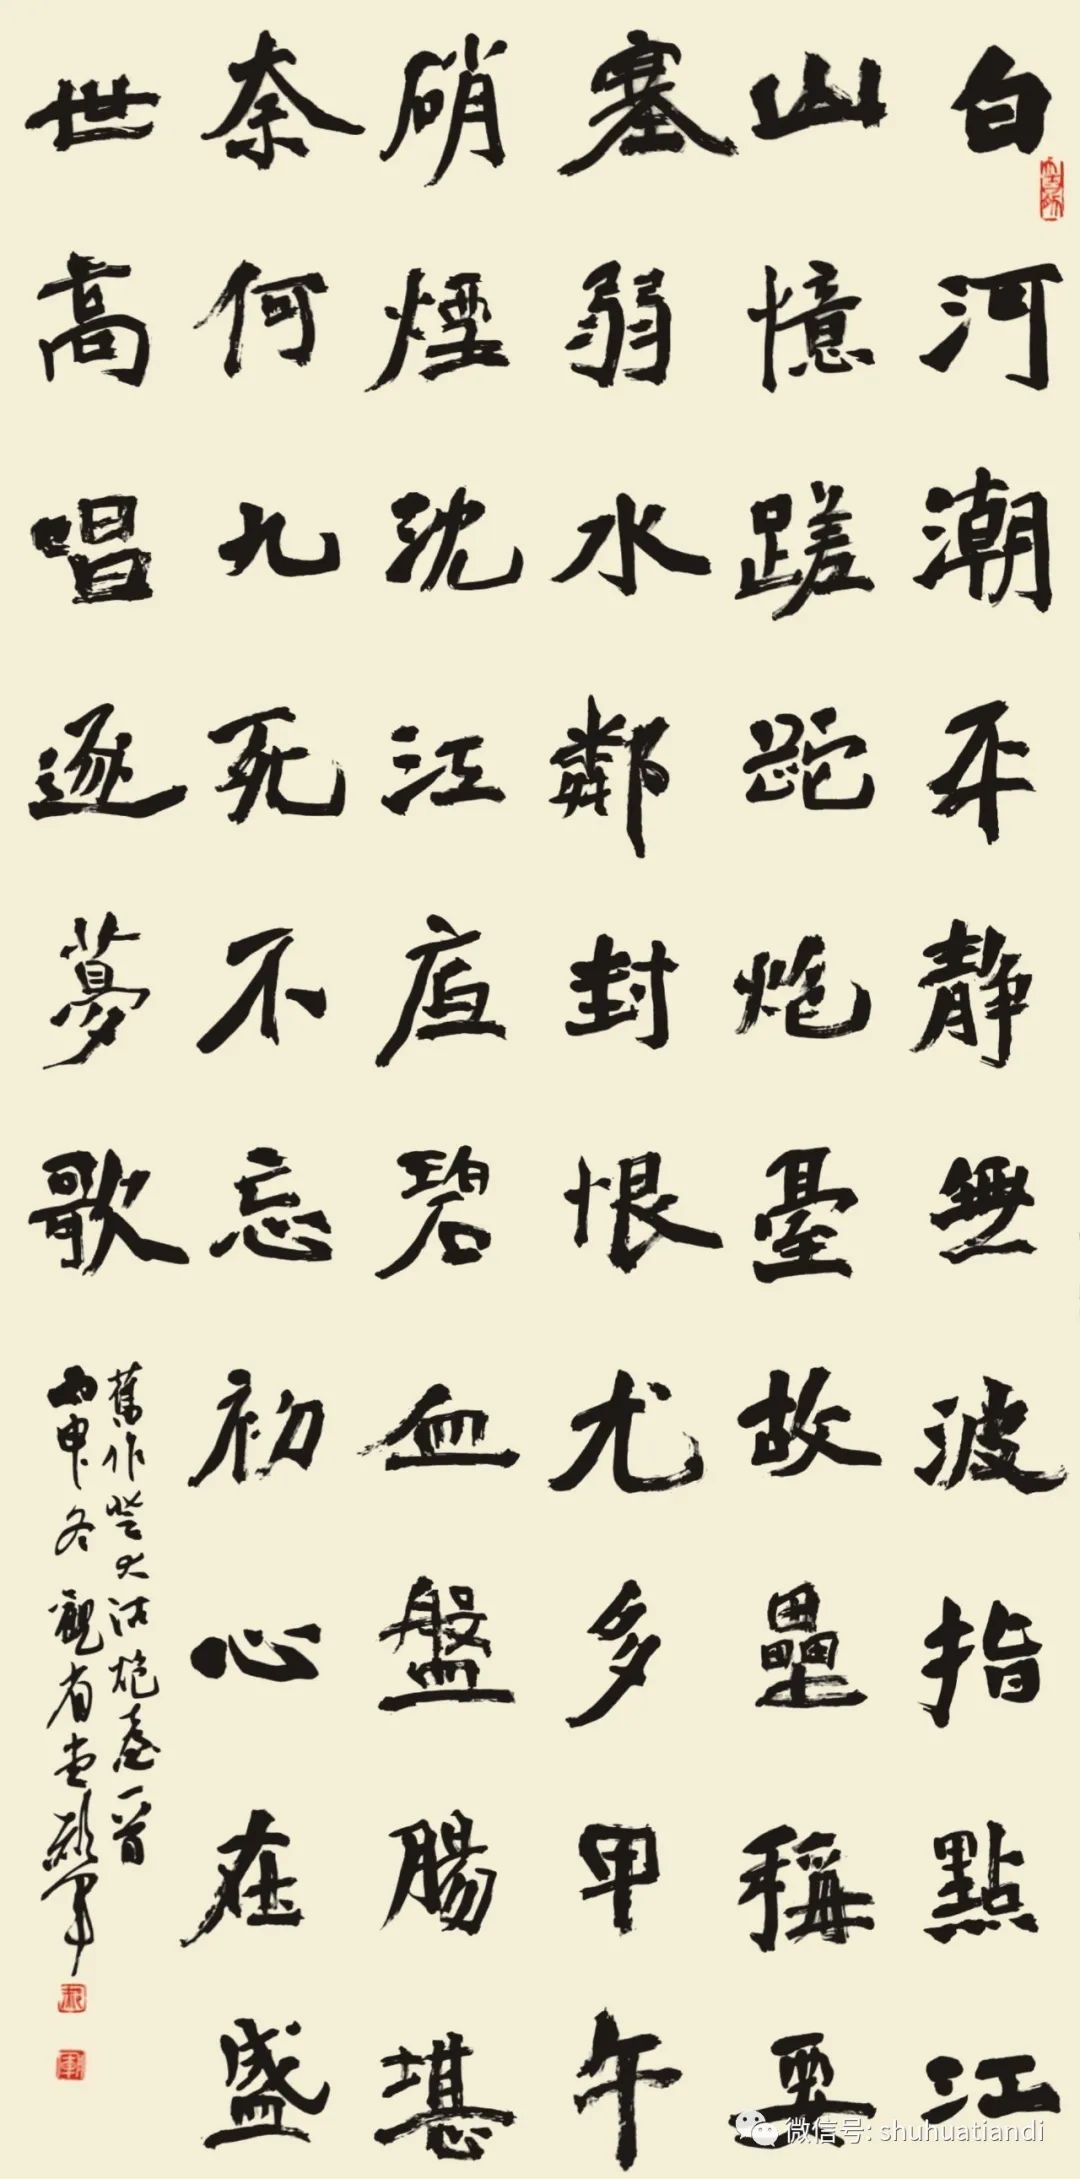 白河潮平静無波指點江
山憶蹉跎炮臺故壘稱要
塞弱水鄰封恨尤多甲午
硝煙沈江底碧血盤腸堪
奈何九死不忘初心在盛
世高唱逐夢歌
舊作登大沽炮臺一首
丙申冬觀省堂軍
微信号: shuhuatiandi